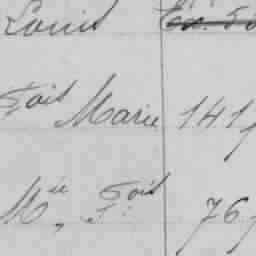 Louis
Foit Marie 141
Mie, F. Foit 76